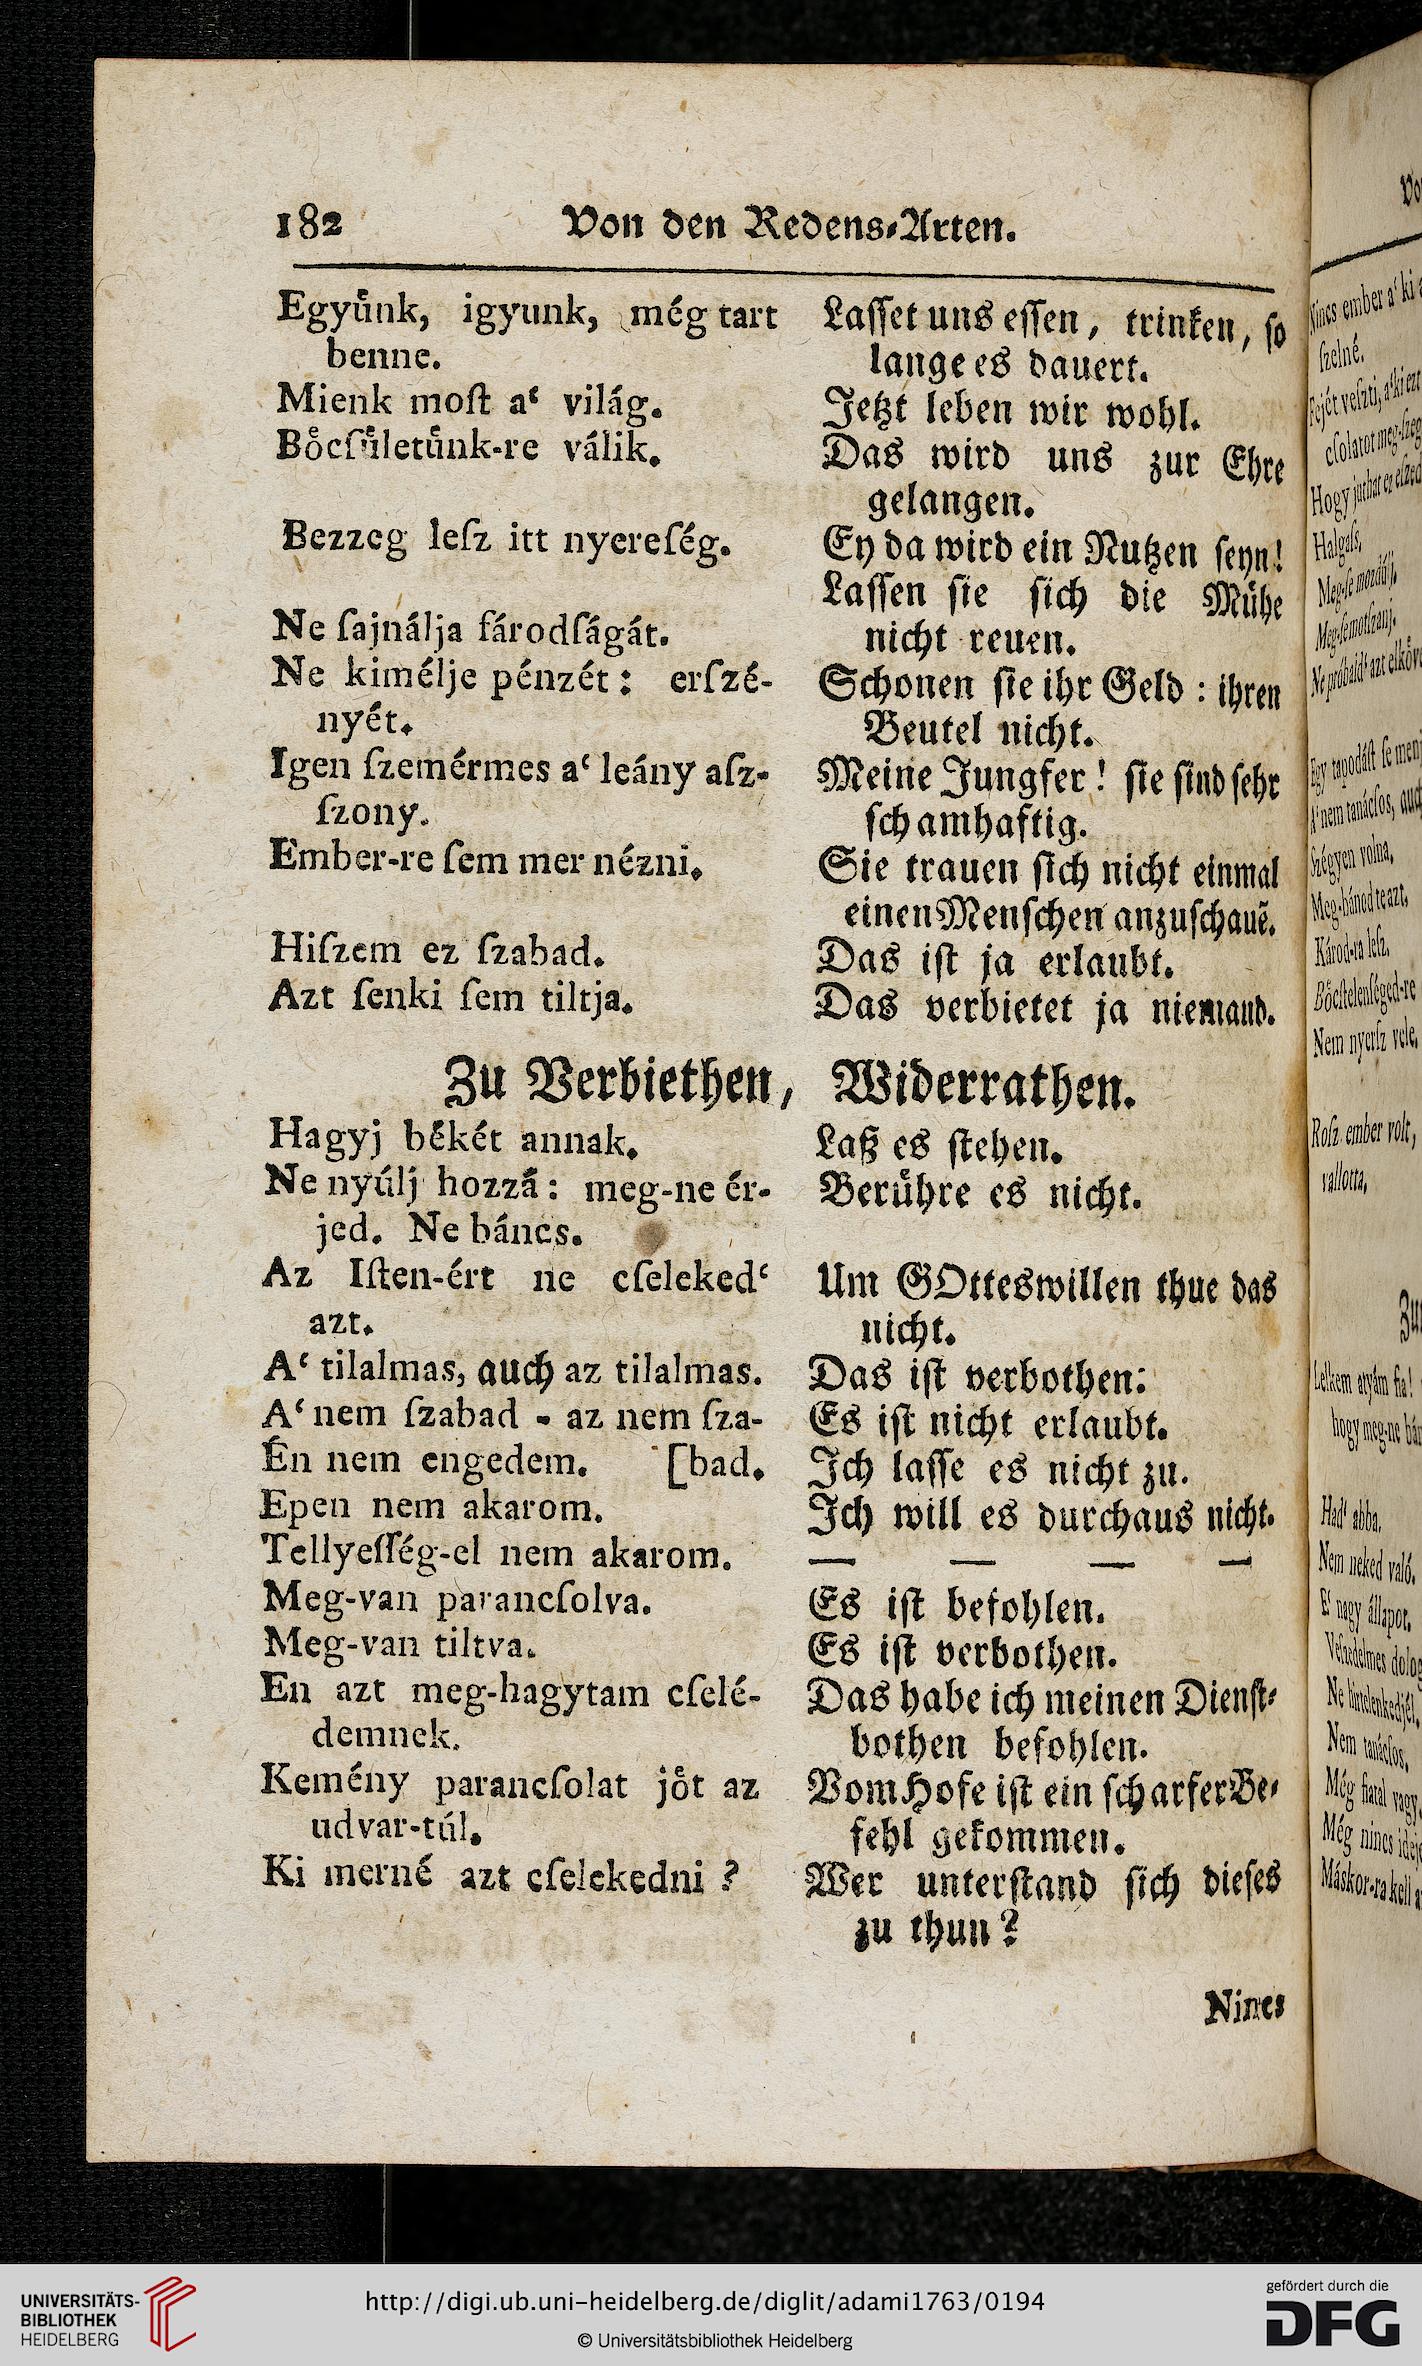 182 Von den Redens⸗Arten.
Egyuͤnk, igyunk, még tart
benne.
Mienk moſt a‘ világ.
Boͤcſuͤletuͤnk-re válik.
Bezzeg leſz itt nyereſég.
Ne ſajnálja fárodſágát.
Ne kimélje pénzét: erſzé-
nyét.
Igen ſzemérmes a‘ leány aſz-
ſzony.
Ember-re ſem mer nézni.
Hiſzem ez ſzabad.
Azt ſenki ſem tiltja.
Laſſet uns eſſen, trinken, ſo
lange es dauert.
Jetzt leben wir wohl.
Das wird uns zur Ehre
gelangen.
Ey da wird ein Nutzen ſeyn!
Laſſen ſie ſich die Muͤhe
nicht reuen.
Schonen ſie ihr Geld: ihren
Beutel nicht.
Meine Jungfer! ſie ſind ſehr
ſchamhaftig.
Sie trauen ſich nicht einmal
einen Menſchen anzuſchauẽ.
Das iſt ja erlaubt.
Das verbietet ja niemand.
Zu Verbiethen, Widerrathen.
Hagyj békét annak.
Ne nyúlj hozzá: meg-ne ér-
jed. Ne báncs.
Az Iſten-ért ne cſeleked‘
azt.
A‘ tilalmas, auch az tilalmas.
A‘ nem ſzabad - az nem ſza-
Én nem engedem. [bad.
Epen nem akarom.
Tellyeſſég-el nem akarom.
Meg-van parancſolva.
Meg-van tiltva.
En azt meg-hagytam cſelé-
demnek.
Kemény parancſolat joͤt az
udvar-túl.
Ki merné azt cſelekedni?
Laß es ſtehen.
Beruͤhre es nicht.
Um GOttes willen thue das
nicht.
Das iſt verbothen.
Es iſt nicht erlaubt.
Ich laſſe es nicht zu.
Ich will es durchaus nicht.
— — — —
Es iſt befohlen.
Es iſt verbothen.
Das habe ich meinen Dienſt⸗
bothen befohlen.
Vom Hofe iſt ein ſcharfer Be⸗
fehl gekommen.
Wer unterſtand ſich dieſes
zu thun?
Nincs
Nincs ember a‘ ki
ſzelné.
Fejét veſzti, a‘ ki ezt
Halgaſs.
Meg-ſe motſzanj.
Szégyen volna,
Meg-bánod te azt.
Károd-ra leſz.
Nem nyerſz vele.
Roſz ember volt,
vallotta,
Lelkem atyám fia!
hogy meg-ne
Had‘ abba.
Nem neked való.
E‘ nagy állapot.
Nem tanácſos.
Még fiatal vagy.
Még nincs
Máskor-ra kell
UNIVERSITÄTS-
BIBLIOTHEK
HEIDELBERG
http://digi.ub.uni-heidelberg.de/diglit/adami1763/0194
© Universitätsbibliothek Heidelberg
gefördert durch die
DFG